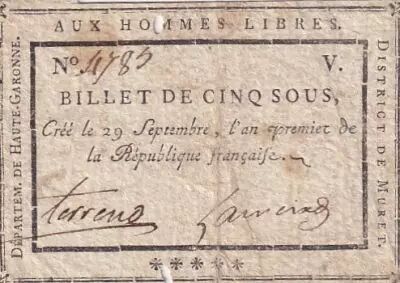 AUX HOMMES LIBRES.
DÉPARTEM. DE HAUTE-GARONNE.
DISTRICT DE MURET.
No. 4785 V.
BILLET DE CINQ SOUS,
Créé le 29 Septembre, l'an premier de
la République française.
terrend
*****